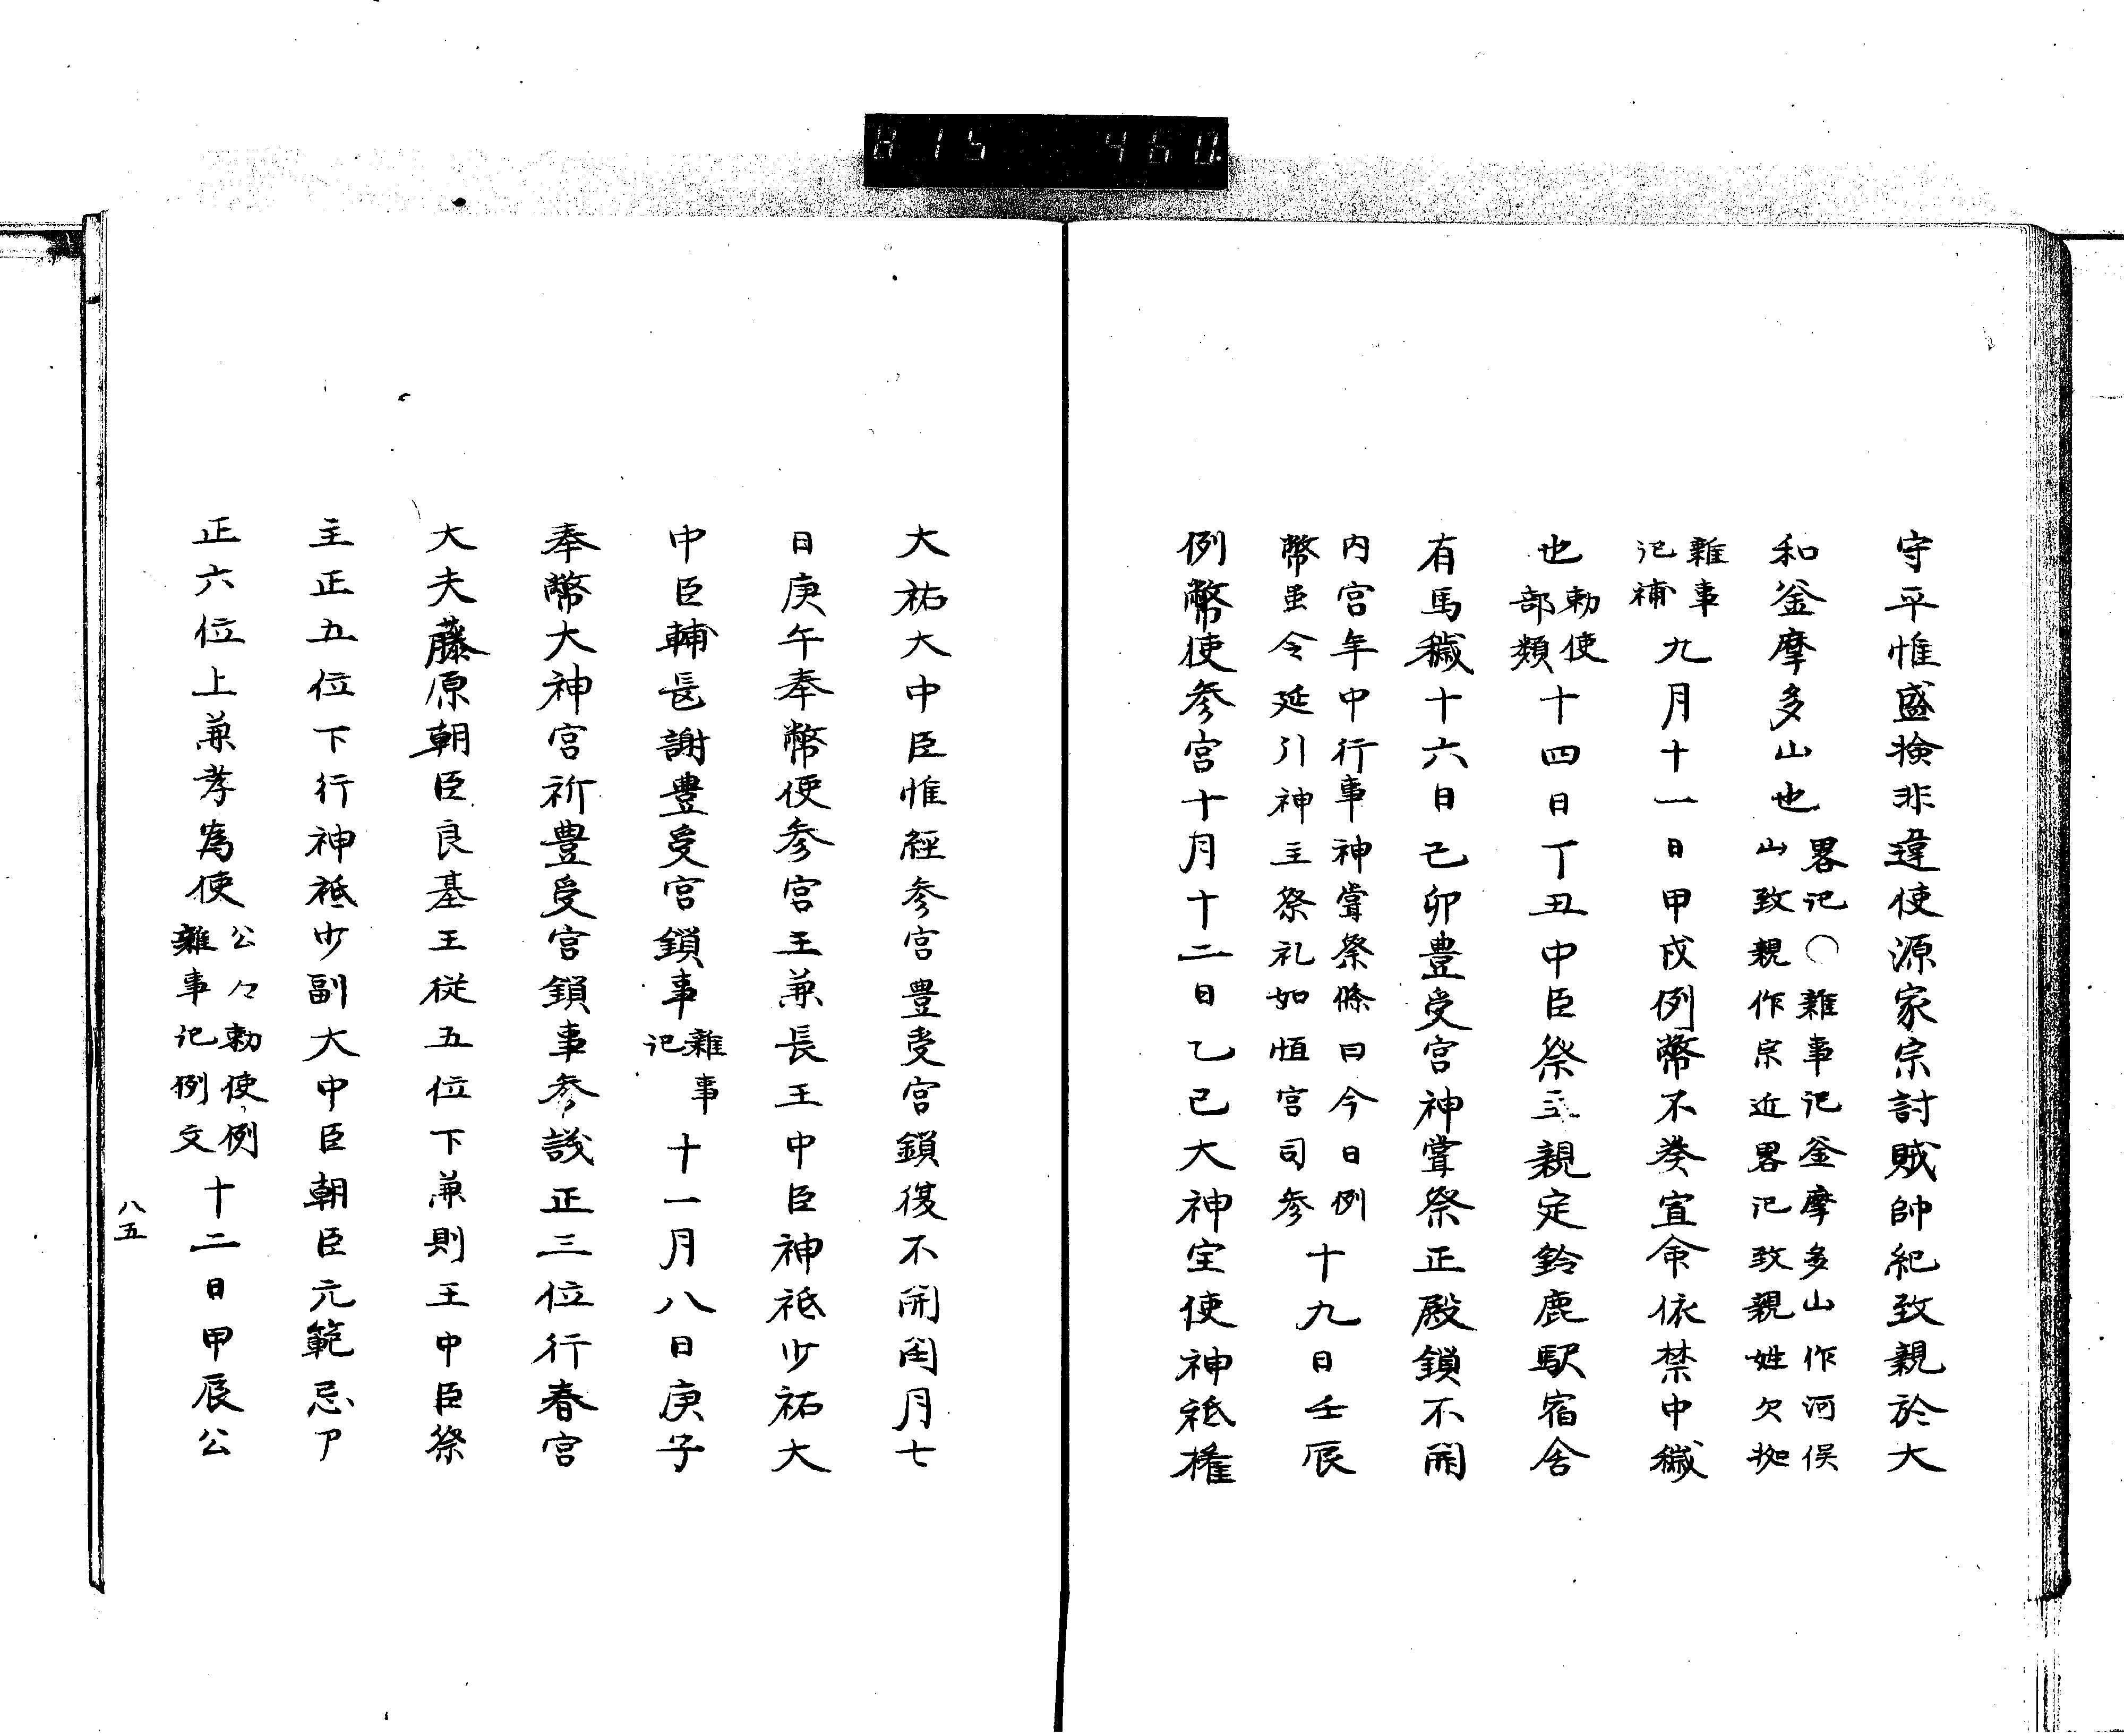 815 460.
守平惟盛撿非違使源家宗討賊帥紀致親於大
和釜摩多山也畧记〇雜事记釜摩多山作河俣
山致親作宗近畧记致親姓欠拠
雜事
记補九月十一日甲戌例幣不発宣命依禁中穢
也勅使
部類十四日丁丑中臣祭主親定鈴鹿駅宿舎
有馬穢十六日己卯豊受宮神甞祭正殿鎖不開
内宮年中行事神甞祭條曰今日例
幣虽令延引神主祭礼如恒宮司参十九日壬辰
例幣使参宮十月十二日乙巳大神宝使神祇権
大祐大中臣惟經参宮豊受宮鎖復不開閏月七
日庚午奉幣使参宮王兼長王中臣神祇少祐大
中臣輔長謝豊受宮鎖事雜事
记十一月八日庚子
奉幣大神宮祈豊受宮鎖事参議正三位行春宮
大夫藤原朝臣良基王従五位下兼則王中臣祭
主正五位下行神祇少副大中臣朝臣元範忌ア
正六位上兼孝為使公々勅使例
雜事记例文十二日甲辰公
八五